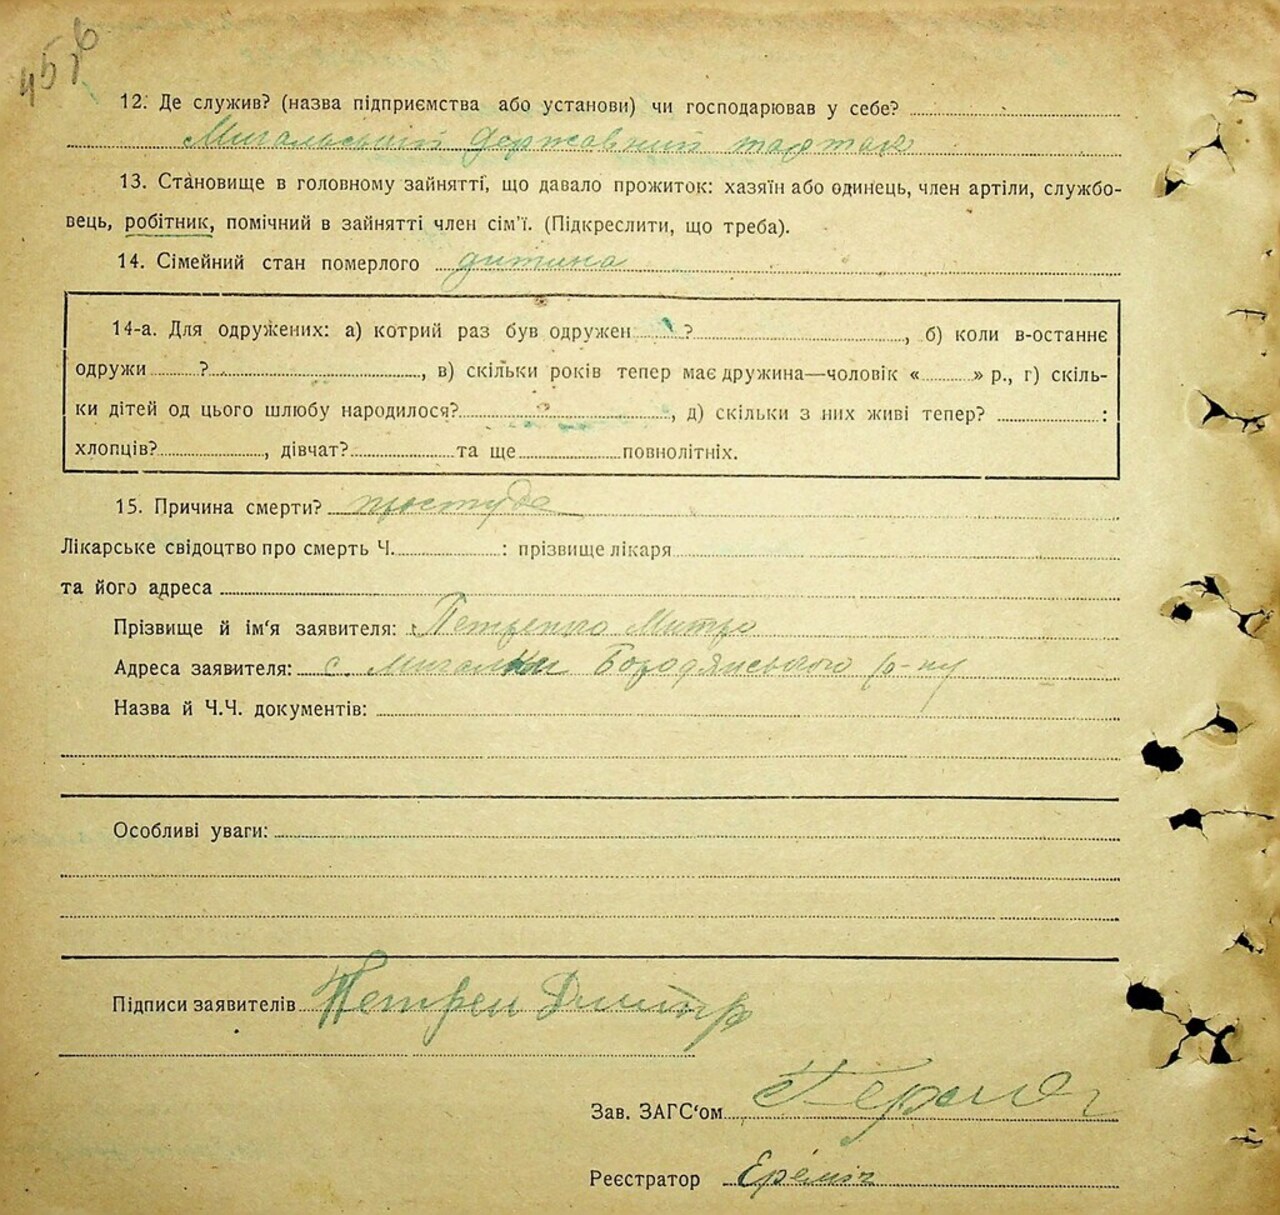 456
12. Де служив? (назва підприємства або установи) чи господарював у себе?
Мигальський державний тартак
13. Становище в головному зайнятті, що давало прожиток: хазяїн або одинець, член артіли, службо-
вець, робітник, помічний в зайнятті член сім'ї. (Підкреслити, що треба).
14. Сімейний стан померлого дитина
14-а. Для одружених: а) котрий раз був одружен ? , б) коли в-останнє
одружи ? , в) скільки років тепер має дружина—чоловік « » р., г) скіль-
ки дітей од цього шлюбу народилося? , д) скільки з них живі тепер? :
хлопців? , дівчат? та ще повнолітніх.
15. Причина смерти? простуда
Лікарське свідоцтво про смерть Ч. : прізвище лікаря
та його адреса
Прізвище й ім'я заявителя: Петренко Митро
Адреса заявителя: с. Мигалки Бородянського р-ну
Назва й Ч.Ч. документів:
Особливі уваги:
Підписи заявителів Петрен Дмитр
Зав. ЗАГС'ом
Реєстратор